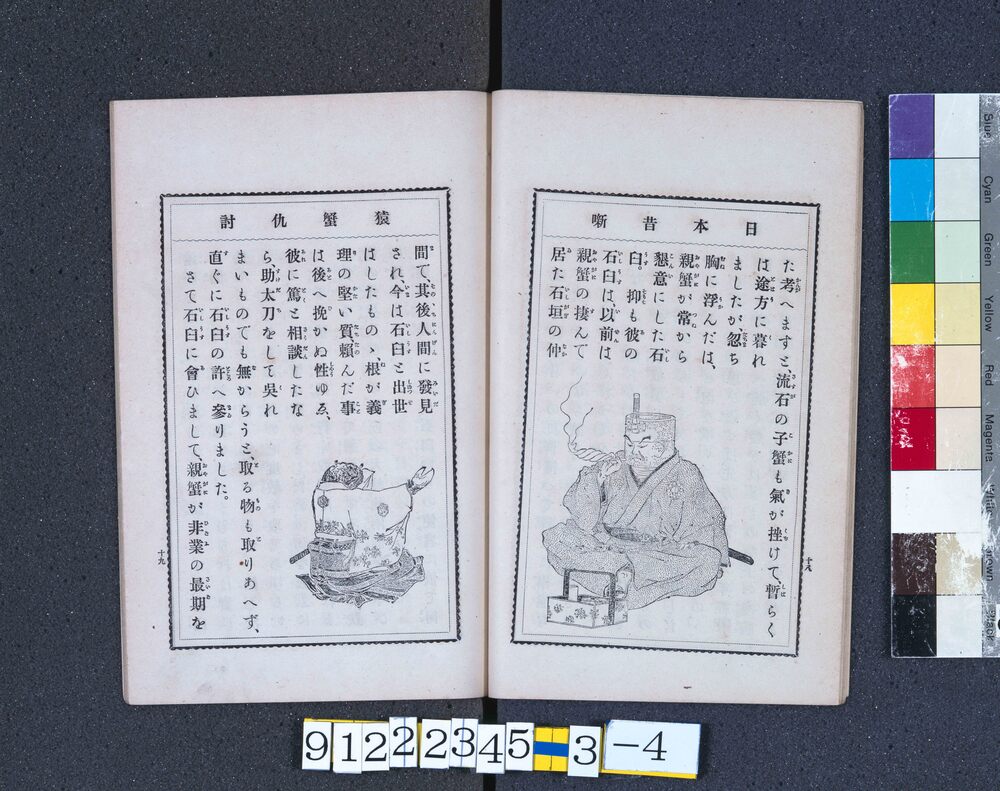 日本昔噺
た考へますと、流石の子蟹も氣が挫けて、暫らく
は途方に暮れ
ましたが、忽ち
胸に浮んだは、
親蟹が常から
懇意にした石
臼。抑も彼の
石臼は、以前は
親蟹の棲んで
居た石垣の仲
十八
猿蟹仇討
間て、其後人間に發見
され今は石臼と出世
はしたものゝ、根が義
理の堅い質頼んだ事
は後へ挽かぬ性ゆゑ、
彼に篤と相談したな
ら助太刀をして吳れ
まいものでも無からうと、取る物も取りあへず、
直ぐに石臼の許へ參りました。
さて石臼に會ひまして、親蟹が非業の最期を
十九
Blue
Cyan
Green
Yellow
Red
Magenta
White
Brown
Black
9122345-3-4